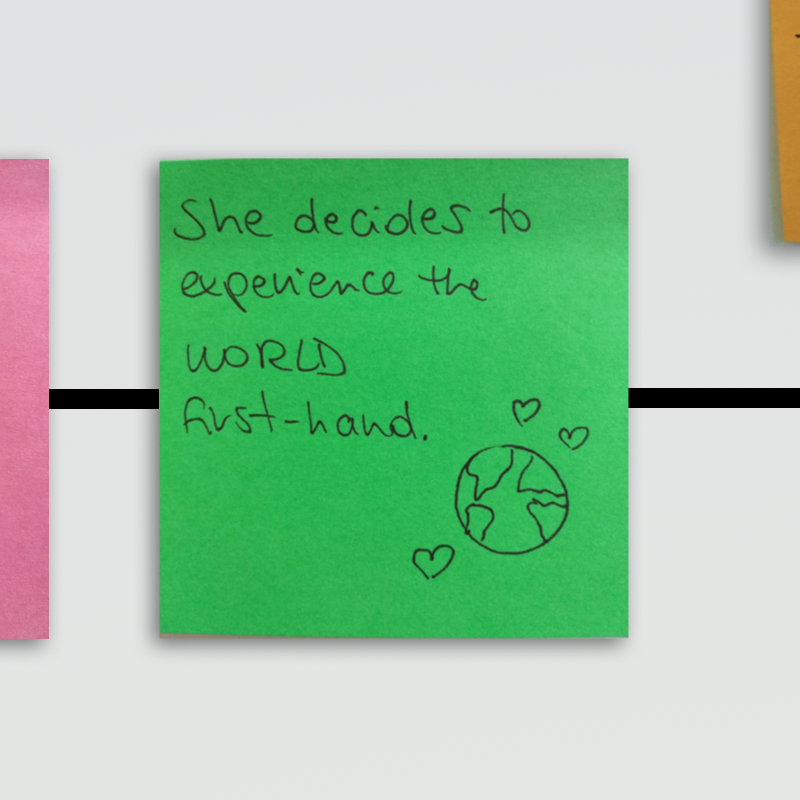 She decides to
experience the
WORLD
first-hand.